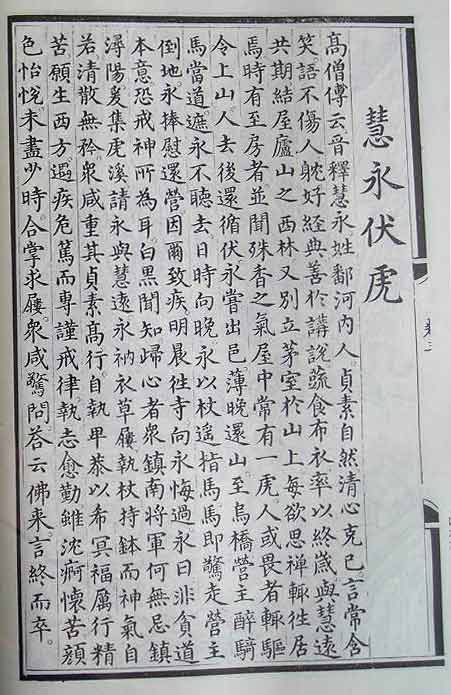 慧永伏虎
高僧傳云晉釋慧永姓鄱河內人貞素自然清心克己言常含
笑語不傷人躭好經典善於講說蔬食布衣率以終歲與慧遠
共期結屋廬山之西林又別立茅室於山上每欲思禪輒徃居
焉時有至房者並聞殊香之氣屋中常有一虎人或畏者輒驅
令上山人去後還循伏永嘗出邑薄晚還山至烏橋營主醉騎
馬當道遮永不聽去日時向晚永以杖遙指馬馬即驚走營主
倒地永捧慰還營因爾致疾明晨徃寺向永悔過永曰非貧道
本意恐戒神所為耳白黑聞知歸心者衆鎮南將軍何無忌鎮
潯陽爰集虎溪請永與慧遠永衲衣草屨執杖持鉢而神氣自
若清散無矜衆咸重其貞素高行自執卑恭以希冥福厲行精
苦願生西方遇疾危篤而專謹戒律執志愈勤雖沈痾懷苦顏
色怡悅未盡少時合掌求屨衆咸驚問荅云佛來言終而卒。
卷三